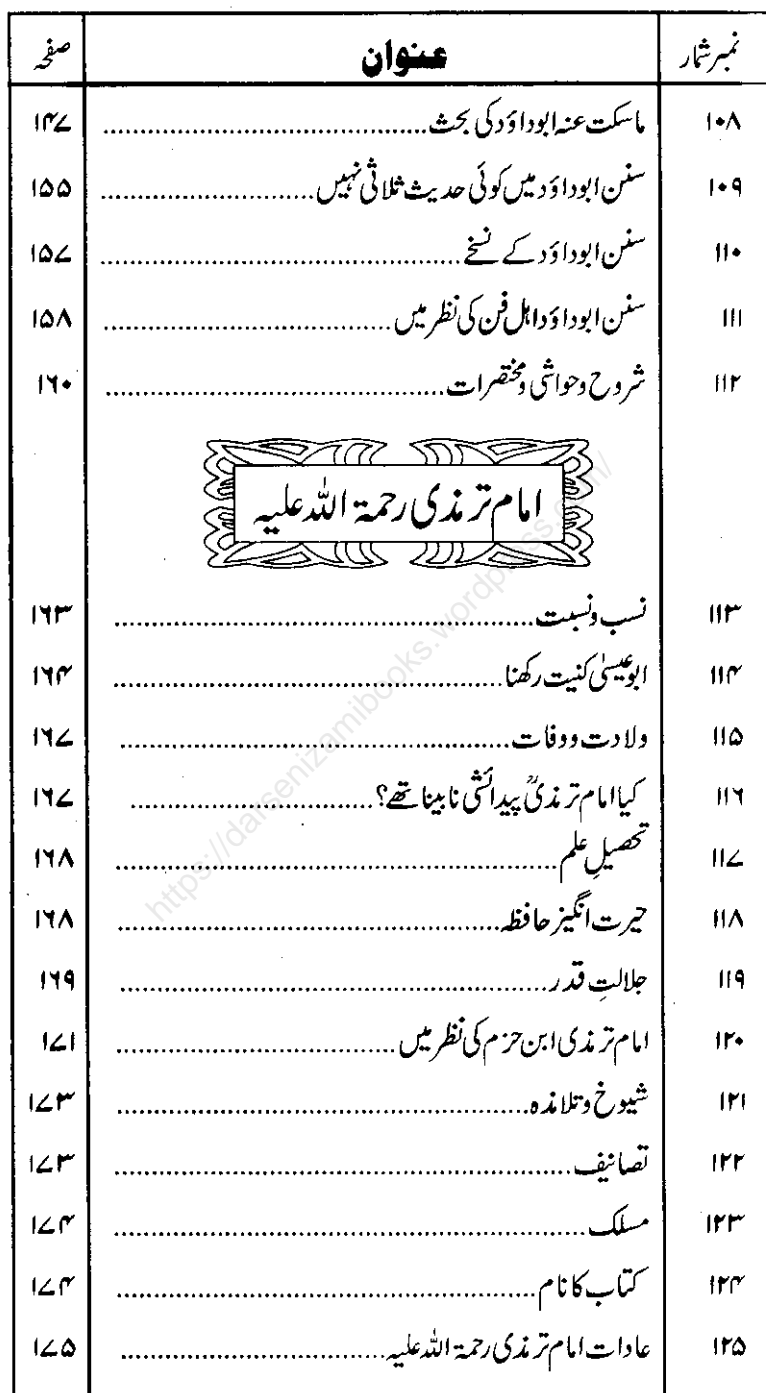 نمبر شمار عنوان صفحہ
۱۰۸ ماسکت عنہ ابوداؤد کی بحث ........ ۱۴۷
۱۰۹ سنن ابوداؤد میں کوئی حدیث ثلاثی نہیں ........ ۱۵۵
۱۱۰ سنن ابوداؤد کے نسخے ........ ۱۵۷
۱۱۱ سنن ابوداؤد اہل فن کی نظر میں ........ ۱۵۸
۱۱۲ شروح وحواشی ومختصرات ........ ۱۶۰
امام ترمذی رحمۃ اللہ علیہ
۱۱۳ نسب ونسبت ........ ۱۶۳
۱۱۴ ابوعیسیٰ کنیت رکھنا ........ ۱۶۴
۱۱۵ ولادت ووفات ........ ۱۶۷
۱۱۶ کیا امام ترمذیؒ پیدائشی نابینا تھے؟ ........ ۱۶۷
۱۱۷ تحصیلِ علم ........ ۱۶۸
۱۱۸ حیرت انگیز حافظہ ........ ۱۶۸
۱۱۹ جلالتِ قدر ........ ۱۶۹
۱۲۰ امام ترمذی ابن حزم کی نظر میں ........ ۱۷۱
۱۲۱ شیوخ وتلامذہ ........ ۱۷۳
۱۲۲ تصانیف ........ ۱۷۳
۱۲۳ مسلک ........ ۱۷۴
۱۲۴ کتاب کا نام ........ ۱۷۴
۱۲۵ عادات امام ترمذی رحمۃ اللہ علیہ ........ ۱۷۵
https://darsenizamibooks.wordpress.com/